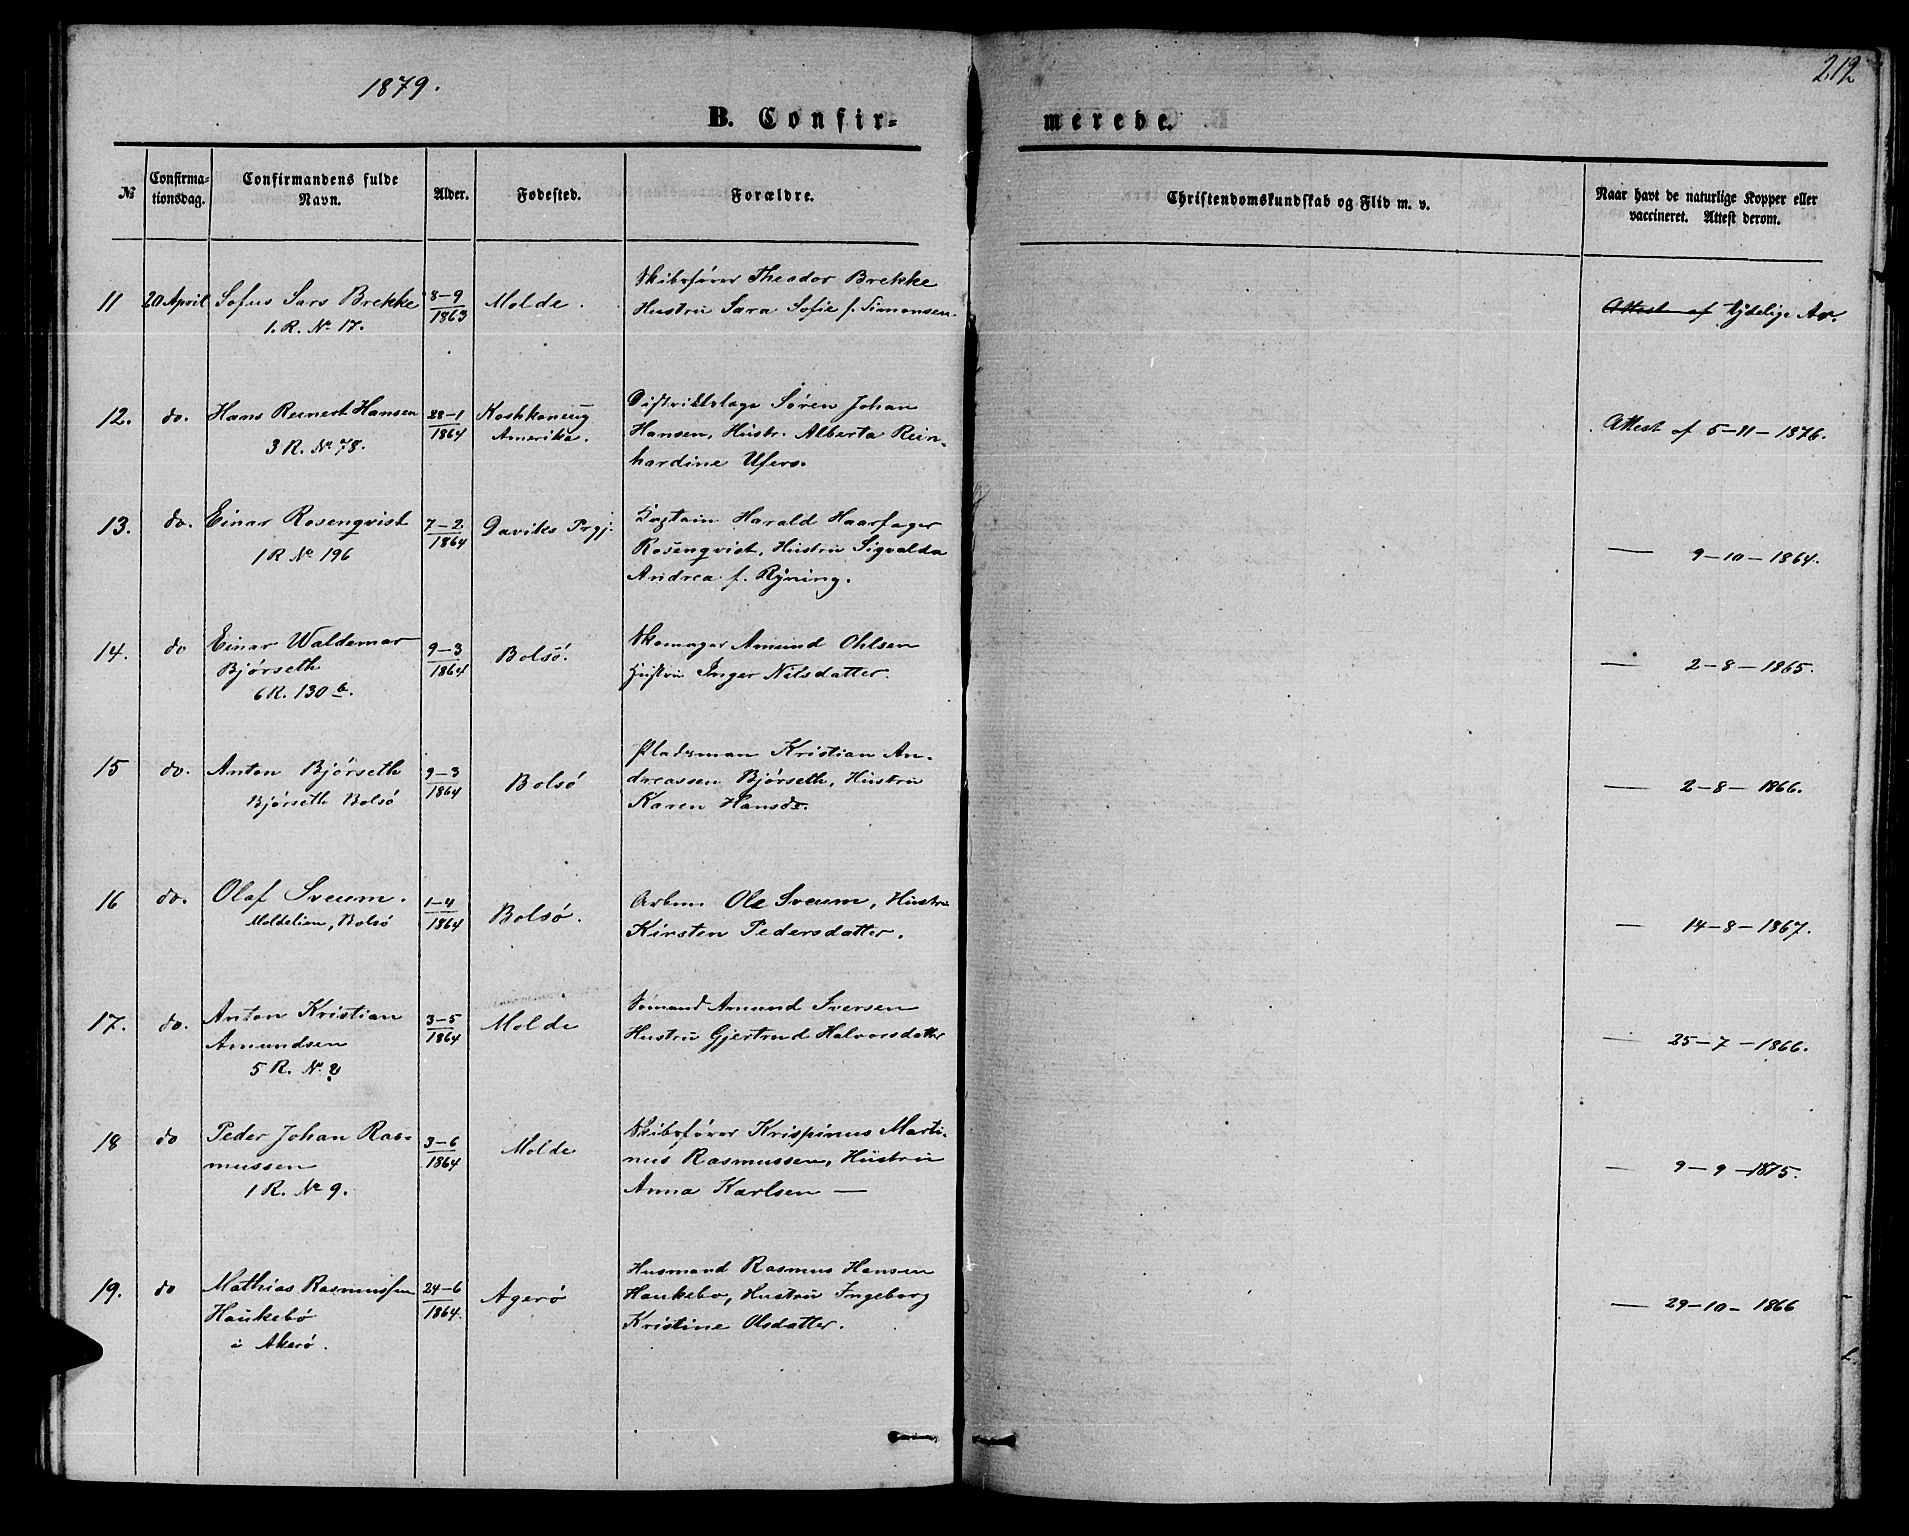 1879.
212
B. Confir-
merede.
No
Confirma-
tionsdag.
Confirmandens fulde
Navn.
Alder.
Fødested.
Forældre.
Christendomskundskab og Flid m. v.
Naar havt de naturlige Kopper eller
vaccineret. Attest derom.
11 20 April Sofus Sars Brekke 8-9 1863 Molde.
1. R. No 17.
Skibsfører Theodor Brekke
Hustru Sara Sofie f. Simonsen
Attest af tydelige Ar.
12. do. Hans Reinert Hansen 28-1 1864 Koshkonung
Amerika.
3 R. No 78.
Distriktslæge Søren Johan
Hansen, Hustr. Alberta Rein-
hardine Ufers.
Attest af 5-11-1876.
13. do. Einar Rosenqvist 7-2 1864 Daviks Prgj.
1 R No 196
Kaptain Harald Haarfager
Rosenqvist, Hustru Sigvalda
Andrea f. Ryning.
— 9-10-1864.
14. do Einar Waldemar 9-3 1864 Bolsö.
Bjørseth
6 R. 130 b.
Skomager Amund Ohlsen
Hustru Inger Nilsdatter.
— 2-8-1865.
15 do. Anton Bjørseth 9-3 1864 Bolsø
Bjørseth Bolsø
Pladsman Kristian An-
dreassen Bjørseth, Hustru
Karen Hansdr.
— 2-8-1866.
16 do. Olaf Sveum. 1-4 1864 Bolsø.
Moldelien, Bolsø
Arbm. Ole Sveum, Hustru
Kirsten Pedersdatter.
— 14-8-1867.
17. do. Anton Kristian 3-5 1864 Molde
Amundsen
5 R. No 2
Sømand Amund Iversen
Hustru Gjertrud Halvorsdatter
— 25-7-1866.
18 do Peder Johan Ras- 3-6 1864 Molde
mussen
1 R. No 9.
Skibsfører Krispinus Marti-
nus Rasmussen, Hustru
Anna Karlsen —
— 9-9-1875.
19. do Mathias Rasmussen 24-6 1864. Agerø
Haukebø
i Akerø.
Husmand Rasmus Hansen
Haukebø, Hustru Ingeborg
Kristine Olsdatter.
— 29-10-1866